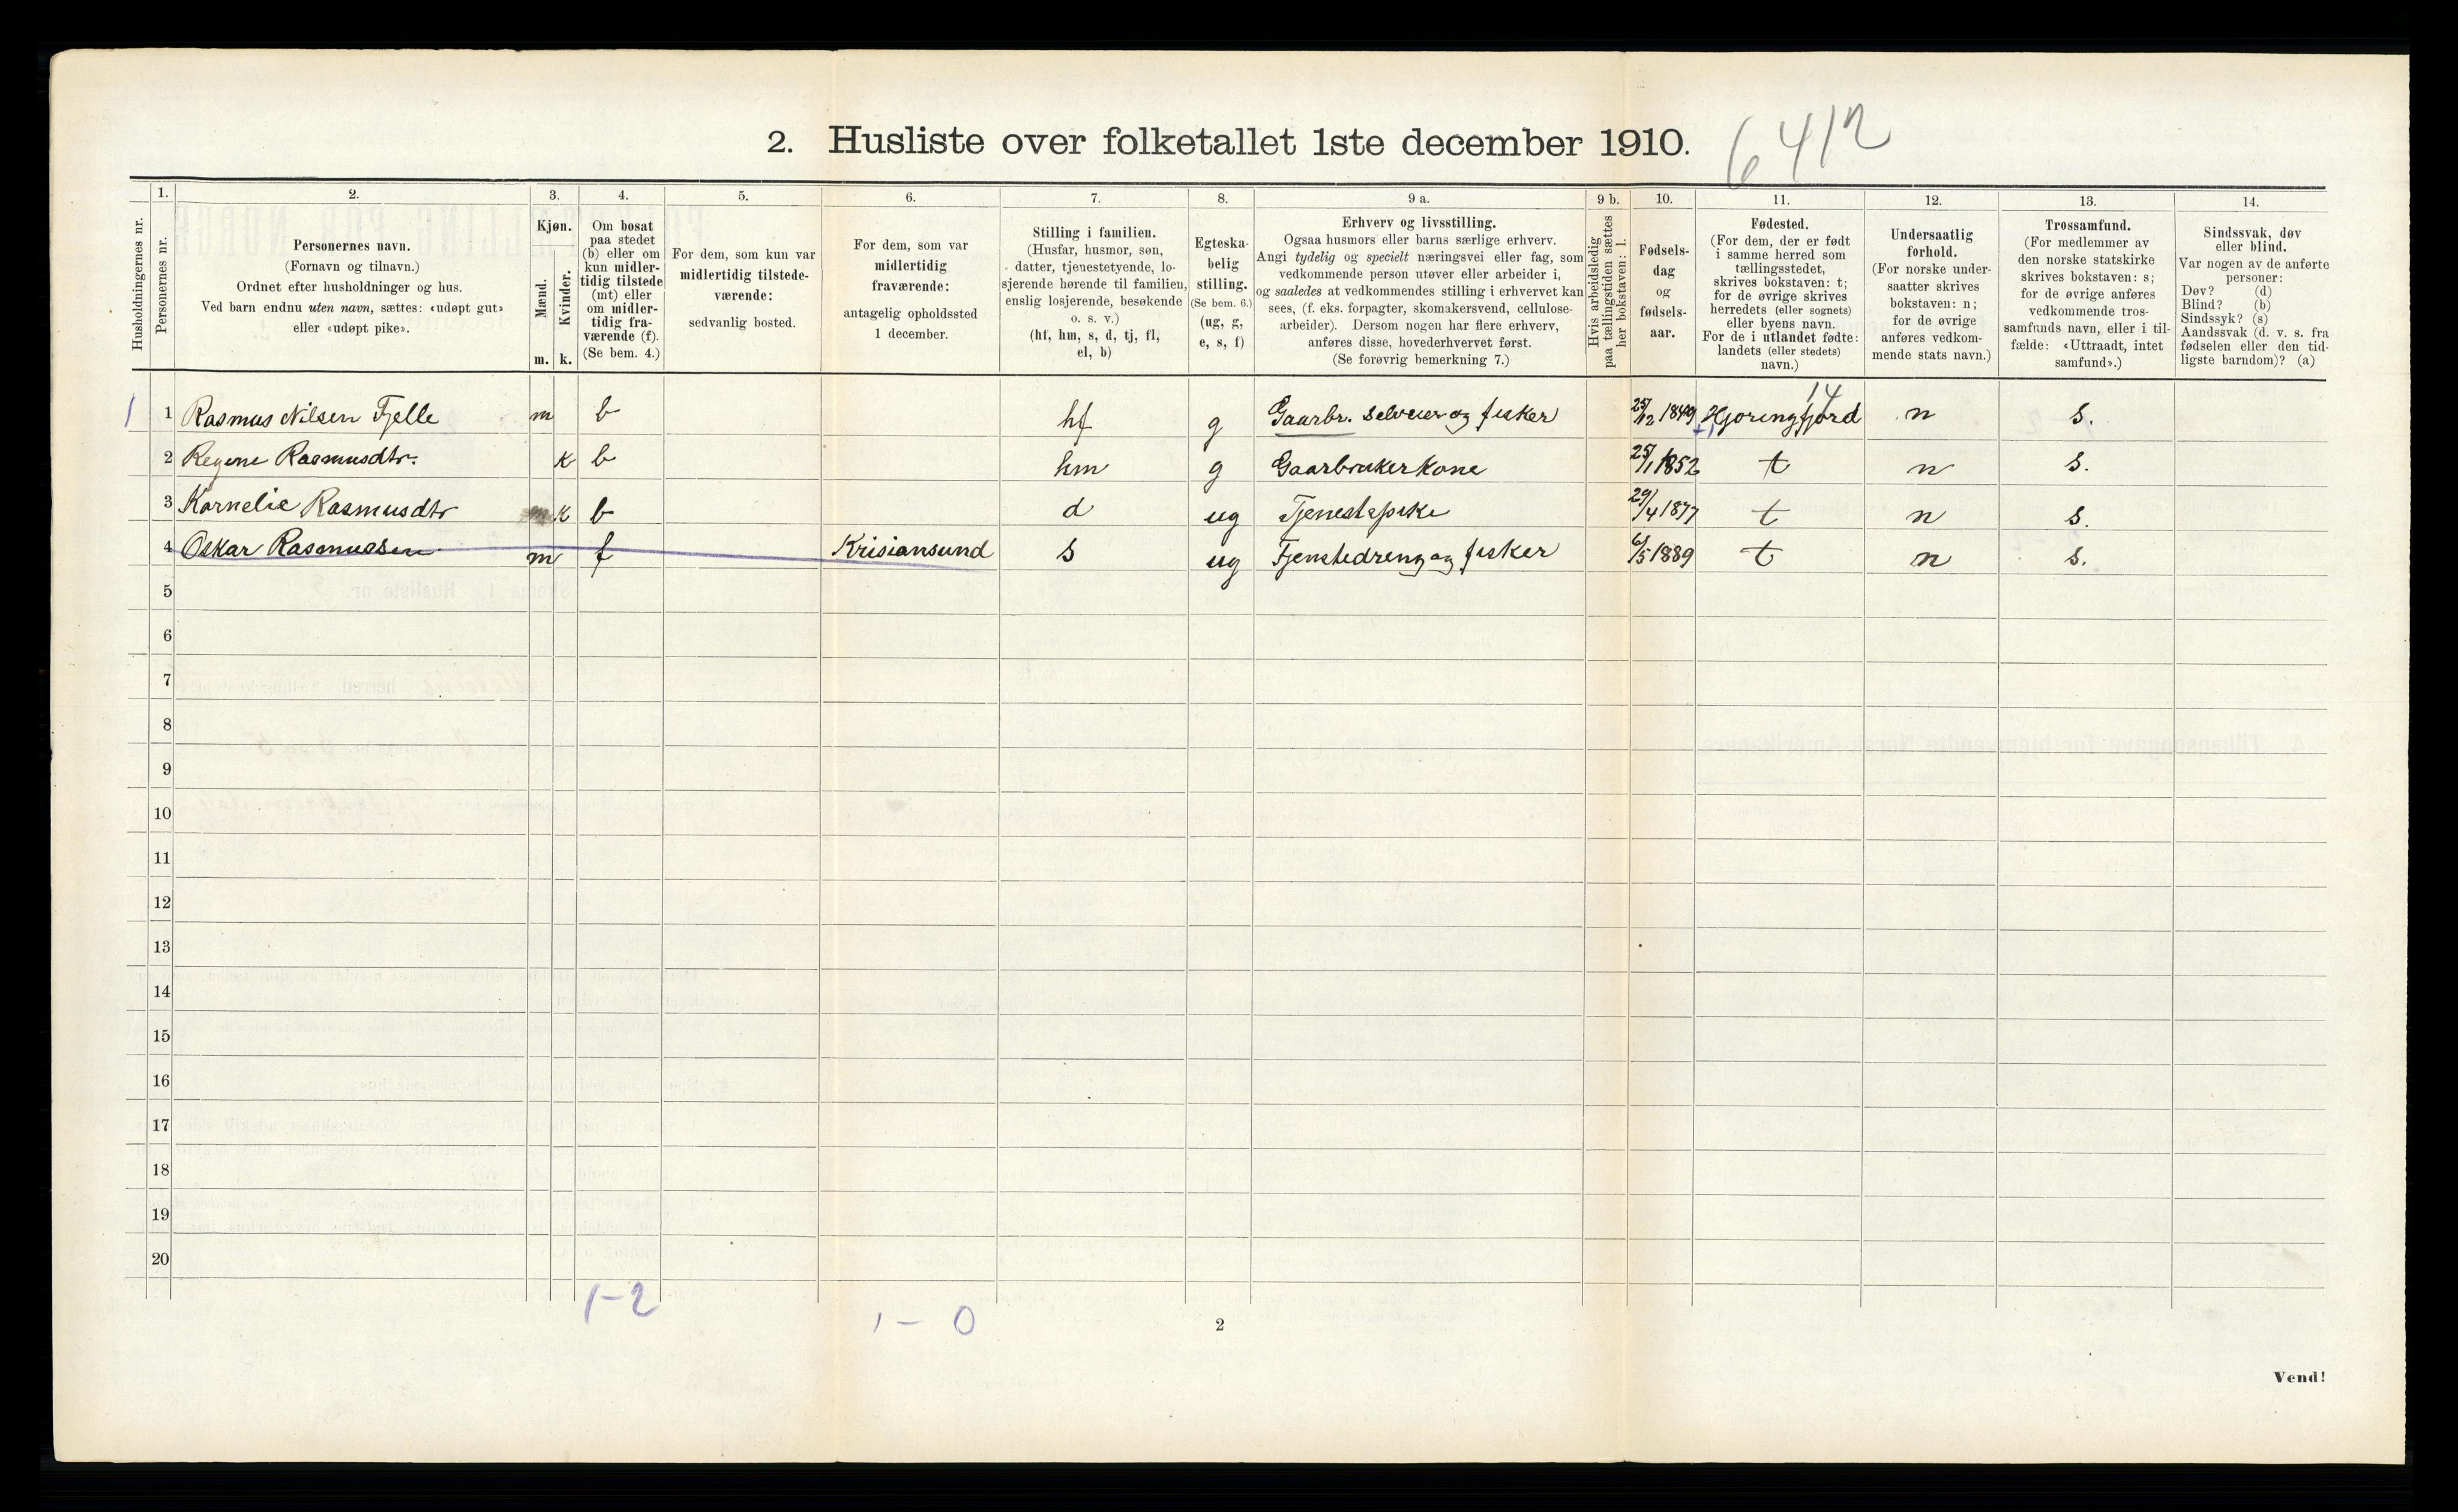 2. Husliste over folketallet 1ste december 1910. 6412
Husholdningernes nr.
1.
Personernes nr.
2.
Personernes navn.
(Fornavn og tilnavn.)
Ordnet efter husholdninger og hus.
Ved barn endnu uten navn, sættes: «udøpt gut»
eller «udøpt pike».
3.
Kjøn.
Mænd.
Kvinder.
m. k.
4.
Om bosat
paa stedet
(b) eller om
kun midler-
tidig tilstede
(mt) eller
om midler-
tidig fra-
værende (f).
(Se bem. 4.)
5.
For dem, som kun var
midlertidig tilstede-
værende:
sedvanlig bosted.
6.
For dem, som var
midlertidig
fraværende:
antagelig opholdssted
1 december.
7.
Stilling i familien.
(Husfar, husmor, søn,
datter, tjenestetyende, lo-
sjerende hørende til familien,
enslig losjerende, besøkende
o. s. v.)
(hf, hm, s, d, tj, fl,
el, b)
8.
Egteska-
belig
stilling.
(Se bem. 6.)
(ug, g,
e, s, f)
9 a.
Erhverv og livsstilling.
Ogsaa husmors eller barns særlige erhverv.
Angi tydelig og specielt næringsvei eller fag, som
vedkommende person utøver eller arbeider i,
og saaledes at vedkommendes stilling i erhvervet kan
sees, (f. eks. forpagter, skomakersvend, cellulose-
arbeider). Dersom nogen har flere erhverv,
anføres disse, hovederhvervet først.
(Se forøvrig bemerkning 7.)
9 b.
Hvis arbeidsledig
paa tællingstiden sættes
her bokstaven: l.
10.
Fødsels-
dag
og
fødsels-
aar.
11.
Fødested.
(For dem, der er født
i samme herred som
tællingsstedet,
skrives bokstaven: t;
for de øvrige skrives
herredets (eller sognets)
eller byens navn.
For de i utlandet fødte:
landets (eller stedets)
navn.)
12.
Undersaatlig
forhold.
(For norske under-
saatter skrives
bokstaven: n;
for de øvrige
anføres vedkom-
mende stats navn.)
13.
Trossamfund.
(For medlemmer av
den norske statskirke
skrives bokstaven: s;
for de øvrige anføres
vedkommende tros-
samfunds navn, eller i til-
fælde: «Uttraadt, intet
samfund».)
14.
Sindssvak, døv
eller blind.
Var nogen av de anførte
personer:
Døv? (d)
Blind? (b)
Sindssyk? (s)
Aandssvak (d. v. s. fra
fødselen eller den tid-
ligste barndom)? (a)
14
1 1 Rasmus Nilsen Fjelle m b hf g Gaarbr. selveier og fisker 25/12 1849 Hjoringfjord n s.
2 Regine Rasmusdtr. k b hm g Gaarbrukerkone 25/1 1852 t n s.
3 Kornelie Rasmusdtr k b d ug Tjenestepike 29/4 1877 t n s.
4 Oskar Rasmussen m f Krisiansund s ug Tjenstedreng og fisker 6/5 1889 t n s.
5
6
7
8
9
10
11
12
13
14
15
16
17
18
19
20
1-2
1-0
2
Vend!